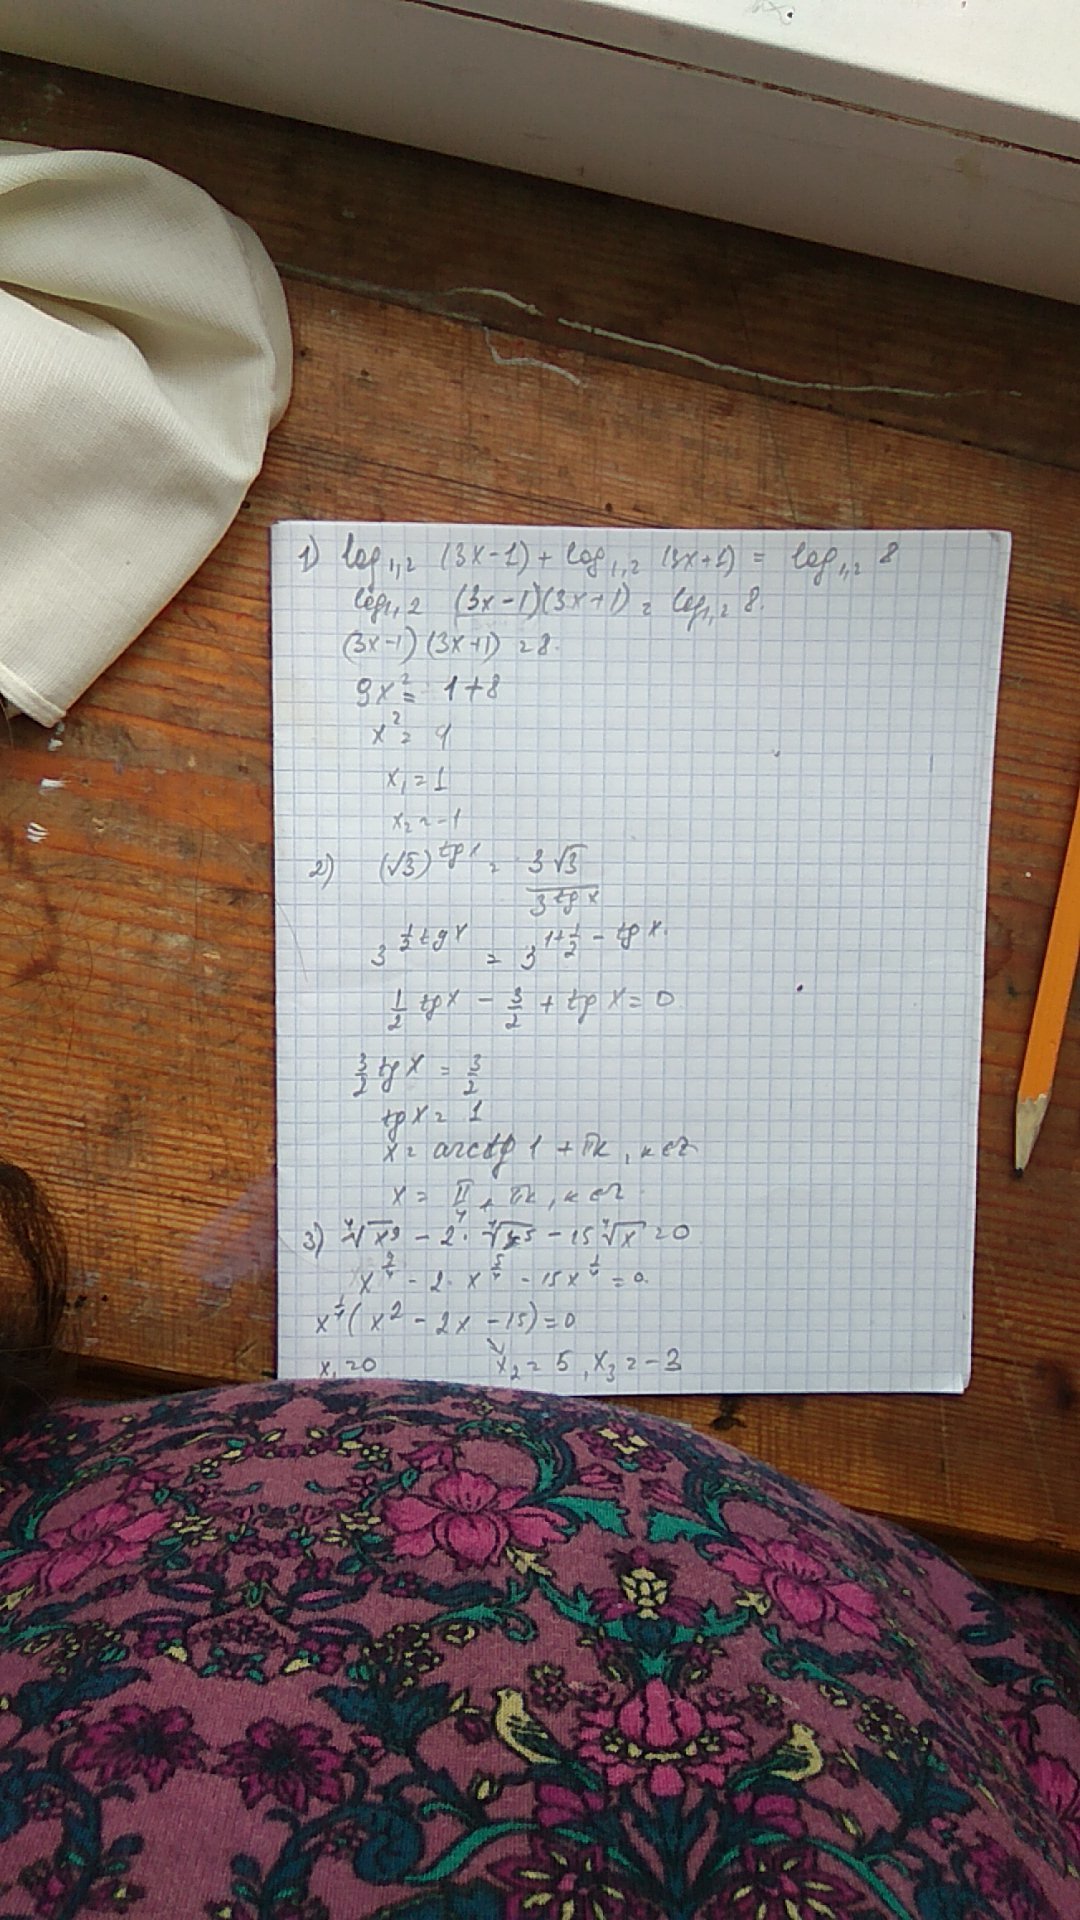 1) log₁,₂ (3x-1) + log₁,₂ (3x+1) = log₁,₂ 8
log₁,₂ (3x-1)(3x+1) = log₁,₂ 8.
(3x-1)(3x+1) = 8.
9x² = 1+8
x² = 1
x₁ = 1
x₂ = -1
2) (√3)^(tg x) = 3√3 / 3^(tg x)
3^(1/2 tg x) = 3^(1+1/2 - tg x).
1/2 tg x - 3/2 + tg x = 0
3/2 tg x = 3/2
tg x = 1
x = arctg 1 + πk, k∈z
x = π/4 + πk, k∈z.
3) ⁴√x⁹ - 2·⁴√x⁵ - 15 ⁴√x = 0
x^(9/4) - 2·x^(5/4) - 15x^(1/4) = 0.
x^(1/4) (x² - 2x - 15) = 0
x₁ = 0 x₂ = 5, x₃ = -3